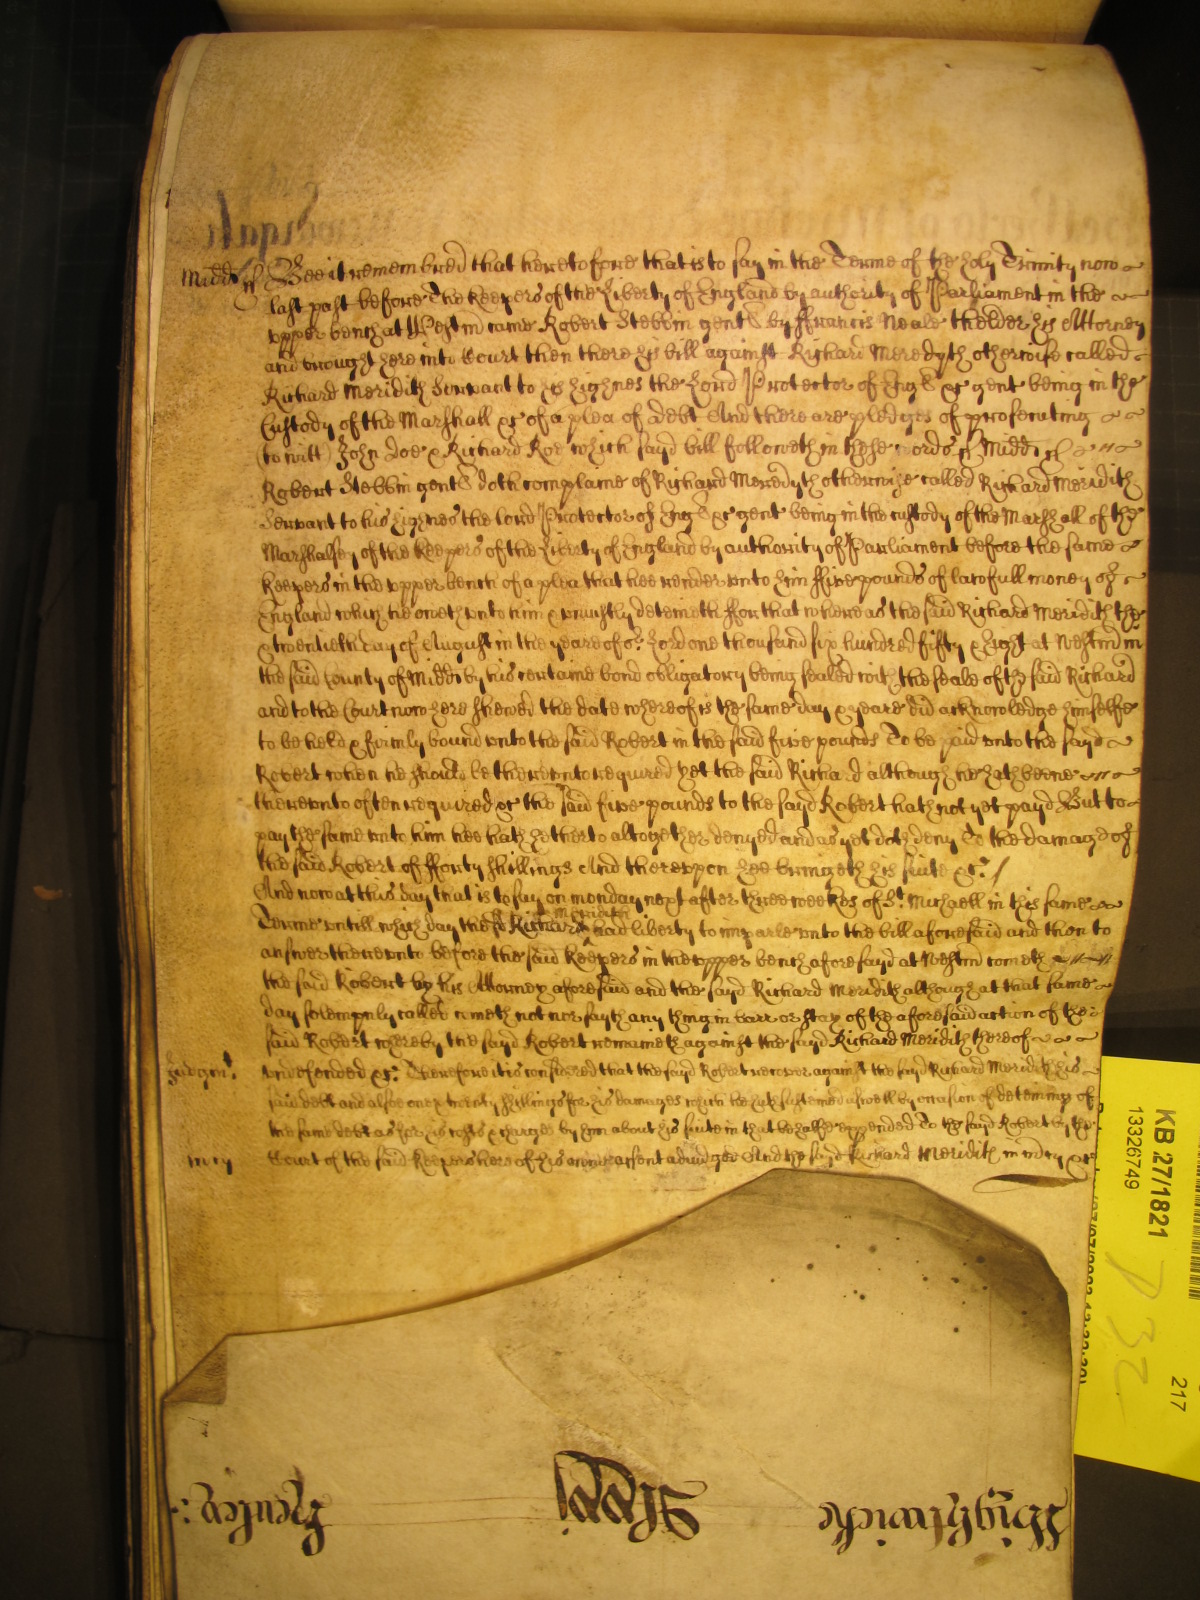 Midds ss Bee it remembred that heretofore that is to say in the Terme of the holy Trinity now
last past before The Keepers of the Liberty of England by authority of Parliament in the
upper bench at Westm came Robert Stebbin gent by ffrancis Neale thelder his Attorney
and brought here into Court then there his bill against Richard Meredyth otherwise called
Richard Meridith Servant to his highnes the Lord Protector of Engl &c gent being in the
Custody of the Marshall &c of a plea of debt And there are pledges of prosecuting
(to witt) John Doe & Richard Roe which sayd bill followeth in these words ss Midds ss
Robert Stebbin gent doth complaine of Richard Meredyth otherwise called Richard Meridith
Servant to his highnes the lord Protector of Engl &c gent being in the custody of the Marshall of the
Marshalsey of the keepers of the Liberty of England by authority of Parliament before the same
keepers in the upper bench of a plea that hee render unto him ffive pounds of lawfull money of
England which he oweth unto him & uniustly deteineth ffor that whereas the said Richard Meridith the
twentieth day of August in the yeare of or Lord one thousand six hundred fifty & eight at Westm in
the said County of Midds by his certaine bond obligatory being sealed with the seale of the said Richard
and to the Court now here shewed the date whereof is the same day & yeare did acknowledge himselfe
to be held & firmly bound unto the said Robert in the said five pounds To be paid unto the sayd
Robert when he should be thereunto required yet the said Richard although he hath beene
thereunto often required &c the said five pounds to the sayd Robert hath not yet payd But to
pay the same unto him hee hath hetherto altogether denyed and as yet doth deny To the damage of
the said Robert of fforty shillings And thereupon hee bringeth his suite &c
And now at this day that is to say on monday next after three weekes of St Michaell in this same
Terme untill which day the sd Richard Meridith had liberty to imparle unto the bill aforesaid and then to
answer thereunto before the said keepers in the upper bench aforesayd at Westm cometh
the said Robert by his Attorney aforesaid and the sayd Richard Meridith although at that same
day solempnly called cometh not nor sayth any thing in barr or stay of the aforesaid action of the
said Robert whereby the sayd Robert remaineth against the sayd Richard Meridith thereof
Judgmt undefended &c Therefore it is considered that the sayd Robert recover against the sayd Richard Meridith his
said debt and alsoe one & twenty shillings for his damages which he hath susteined aswell by occasion of deteining of
the same debt as for his costs & charges by him about his suite in that behalfe expended To the sayd Robert by the
mcy Court of the said keepers here of his owne assent adiudged And the sayd Richard Meridith in mercy &c
KB 27/1821
13326749
217
Wightwicke